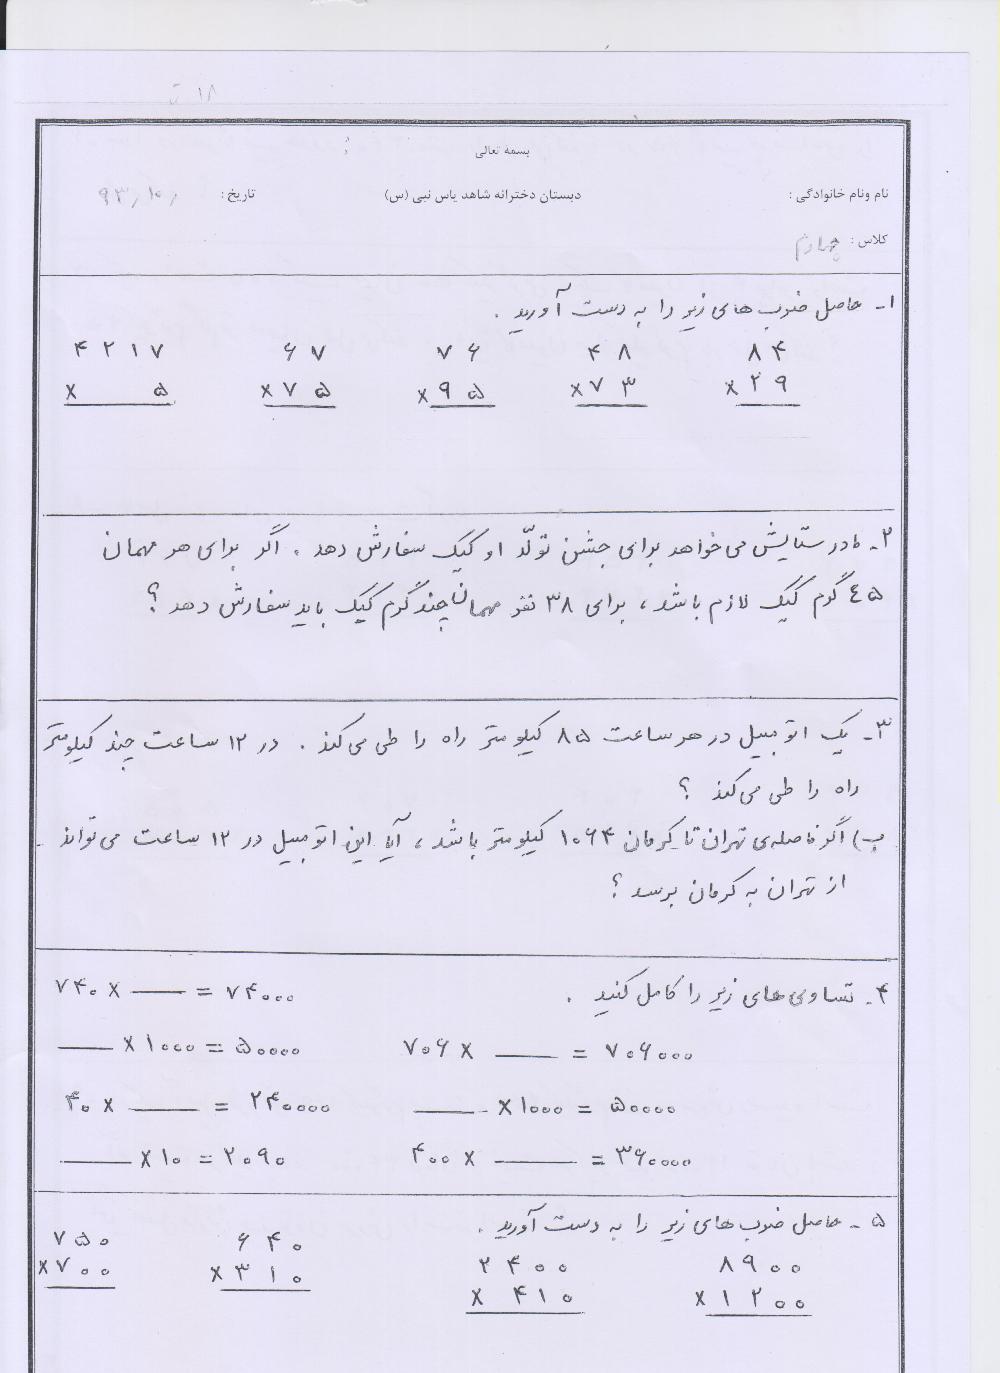 ۱۸ ت
بسمه تعالی
نام ونام خانوادگی : دبستان دخترانه شاهد یاس نبی (س) تاریخ : ۹۳/۱۰/
کلاس : چهارم
۱- حاصل ضرب های زیر را به دست آورید .
۸۴ ۴۸ ۷۶ ۶۷ ۴۲۱۷
×۲۹ ×۷۳ ×۹۵ ×۷۵ × ۵
۲- مادر ستایش می خواهد برای جشن تولّد او کیک سفارش دهد . اگر برای هر مهمان
٤۵ گرم کیک لازم باشد ، برای ۳۸ نفر مهمان چند گرم کیک باید سفارش دهد ؟
۳- یک اتومبیل در هر ساعت ۸۵ کیلومتر راه را طی می کند . در ۱۲ ساعت چند کیلومتر
راه را طی می کند ؟
ب) اگر فاصله ی تهران تا کرمان ۱۰۶۴ کیلومتر باشد ، آیا این اتومبیل در ۱۲ ساعت می تواند
از تهران به کرمان برسد ؟
۴- تساوی های زیر را کامل کنید .
۷۴۰ × ___ = ۷۴۰۰۰
۷۰۶ × ___ = ۷۰۶۰۰۰
___ × ۱۰۰۰ = ۵۰۰۰۰
___ × ۱۰۰۰ = ۵۰۰۰۰
۴۰ × ___ = ۲۴۰۰۰۰
۴۰۰ × ___ = ۳۶۰۰۰۰
___ × ۱۰ = ۲۰۹۰
۵- حاصل ضرب های زیر را به دست آورید .
۸۹۰۰ ۲۴۰۰ ۶۴۰ ۷۵۰
×۱۲۰۰ × ۴۱۰ ×۳۱۰ ×۷۰۰